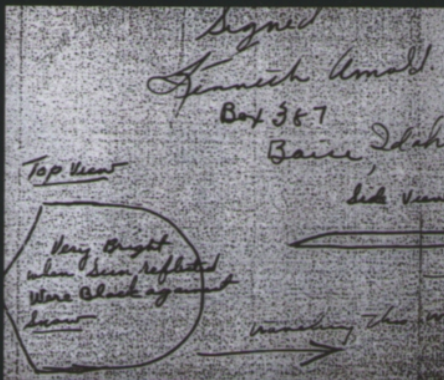 Signed
Kenneth Arnold.
Box 387
Boise, Idah
Top View
Side View
Very Bright
when Sun reflected
Were Black against
Snow
traveling this w